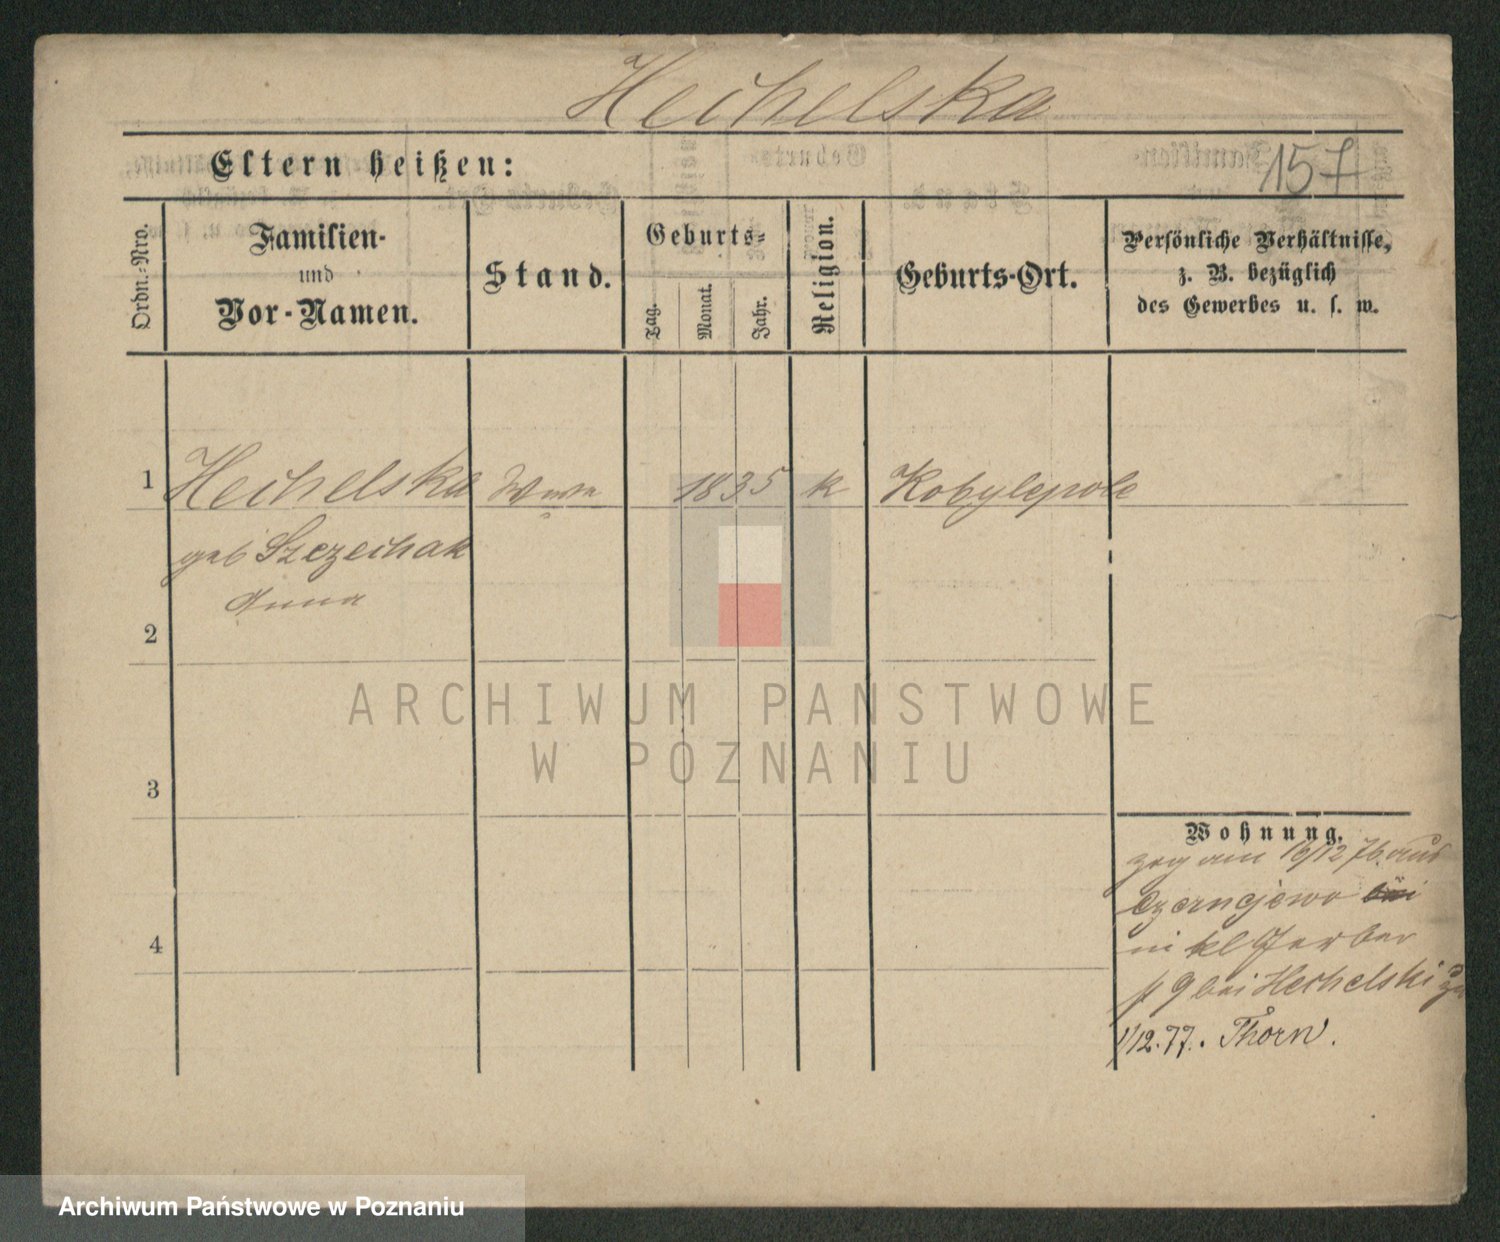 Hechelska
Eltern heißen:
157
Ordn.-Nro.
Familien-
und
Vor-Namen.
Stand.
Geburts-
Tag.
Monat.
Jahr.
Religion.
Geburts-Ort.
Persönliche Verhältnisse,
z. B. bezüglich
des Gewerbes u. s. w.
1 Hechelska Wwe 1835 k Kobylepole
geb Szczechak
Anna
2
3
4
Wohnung.
zog am 16/12 76. aus
Czernejewo
kl Gerber
9 bei Hechelski
1/12.77. Thorn.
ARCHIWUM PANSTWOWE
W POZNANIU
Archiwum Państwowe w Poznaniu